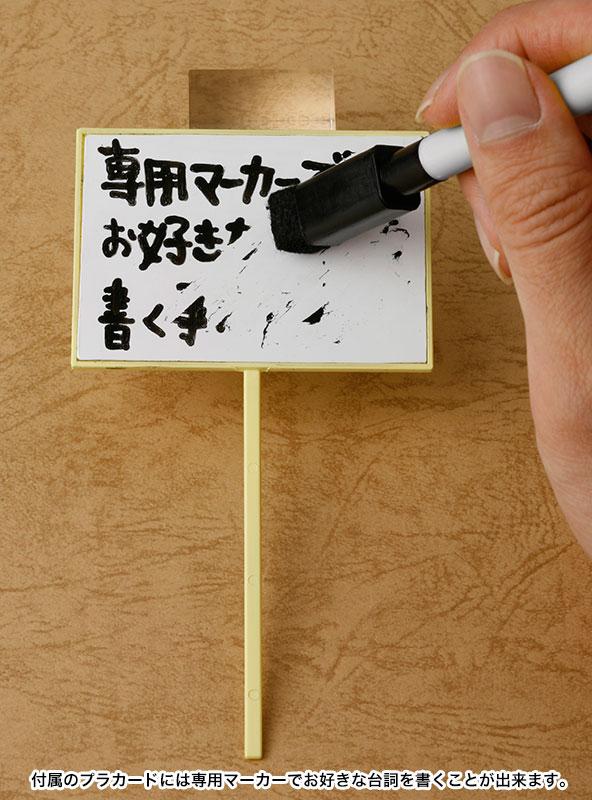 専用マーカーで
お好きな
書く事
付属のプラカードには専用マーカーでお好きな台詞を書くことが出来ます。